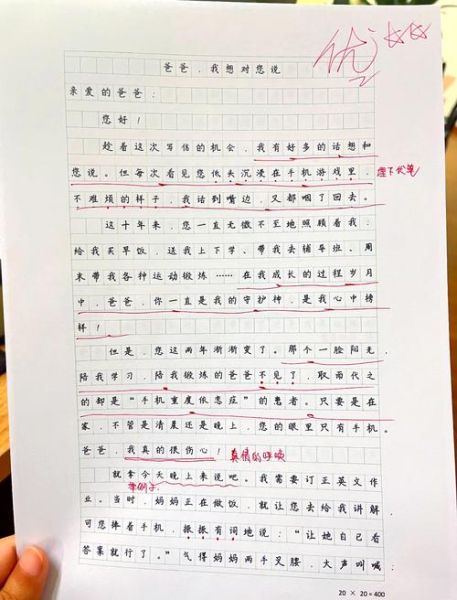 优 ☆☆
爸爸，我想对您说
亲爱的爸爸：
您好！
趁着这次写信的机会，我有好多的话想和
您说。但每次看见您低头沉浸在手机游戏里，
埋下伏笔
不难烦的样子，我话到嘴边，又都咽了回去。
这十年来，您一直无微不至地照顾我：
给我买早饭、送我上下学、带我去辅导班、周
末带我各种运动锻炼……在我成长的过程岁月
中，爸爸，你一直是我的守护神，是我心中榜
样！
但是，您这两年渐渐变了。那个一脸阳光、
陪我学习、陪我锻炼的爸爸不见了，取而代之
的都是“手机重度依恋症”的患者。只要是在
家，不管是清晨还是晚上，您的眼里只有手机。
爸爸，我真的很伤心！ 真情的呼唤
就拿今天晚上来说吧。我需要订正英文作
举例子
业。当时，妈妈正在做饭，就让您去给我讲解，
可您捧着手机，振振有词地说：“让她自己看
答案就行了。”气得妈妈两手叉腰，大声叫喊：
20 × 20 = 400